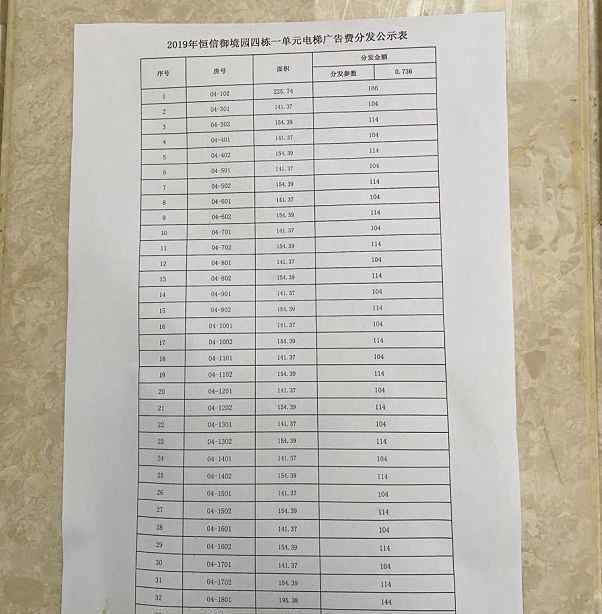 2019年恒信御境园四栋一单元电梯广告费分发公示表
序号 房号 面积 分发金额
分发参数 0.736
1 04-102 225.74 166
2 04-301 141.37 104
3 04-302 154.39 114
4 04-401 141.37 104
5 04-402 154.39 114
6 04-501 141.37 104
7 04-502 154.39 114
8 04-601 141.37 104
9 04-602 154.39 114
10 04-701 141.37 104
11 04-702 154.39 114
12 04-801 141.37 104
13 04-802 154.39 114
14 04-901 141.37 104
15 04-902 154.39 114
16 04-1001 141.37 104
17 04-1002 154.39 114
18 04-1101 141.37 104
19 04-1102 154.39 114
20 04-1201 141.37 104
21 04-1202 154.39 114
22 04-1301 141.37 104
23 04-1302 154.39 114
24 04-1401 141.37 104
25 04-1402 154.39 114
26 04-1501 141.37 104
27 04-1502 154.39 114
28 04-1601 141.37 104
29 04-1602 154.39 114
30 04-1701 141.37 104
31 04-1702 154.39 114
32 04-1801 195.38 144